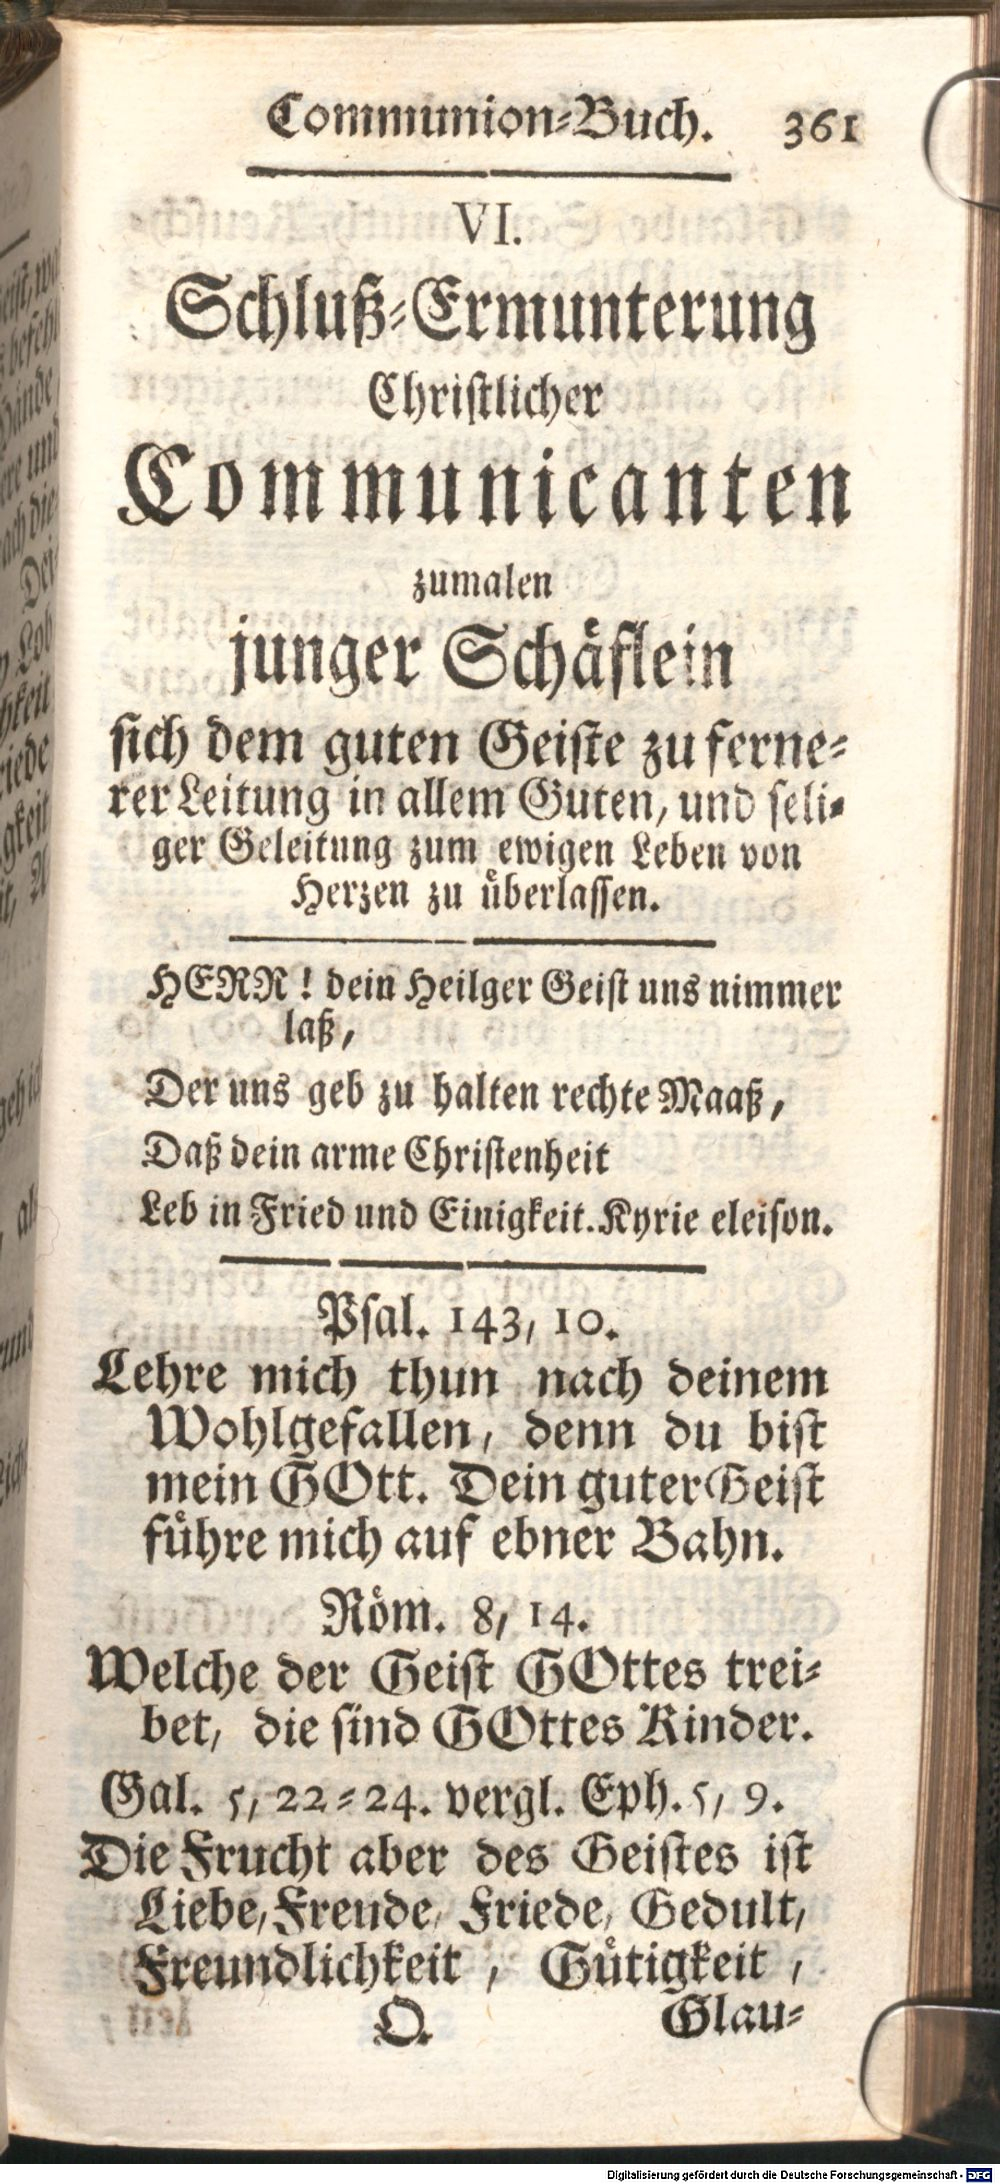 Communion-Buch. 361
VI.
Schluß-Ermunterung
Christlicher
Communicanten
zumalen
junger Schäflein
sich dem guten Geiste zu ferne-
rer Leitung in allem Guten, und seli-
ger Geleitung zum ewigen Leben von
Herzen zu überlassen.
HERR! dein Heilger Geist uns nimmer
laß,
Der uns geb zu halten rechte Maaß,
Daß dein arme Christenheit
Leb in Fried und Einigkeit. Kyrie eleison.
Psal. 143, 10.
Lehre mich thun nach deinem
Wohlgefallen, denn du bist
mein GOtt. Dein guter Geist
führe mich auf ebner Bahn.
Röm. 8, 14.
Welche der Geist GOttes trei-
bet, die sind GOttes Kinder.
Gal. 5, 22-24. vergl. Eph. 5, 9.
Die Frucht aber des Geistes ist
Liebe, Freude, Friede, Gedult,
Freundlichkeit, Gütigkeit,
Q. Glau-
Digitalisierung gefördert durch die Deutsche Forschungsgemeinschaft - DFG